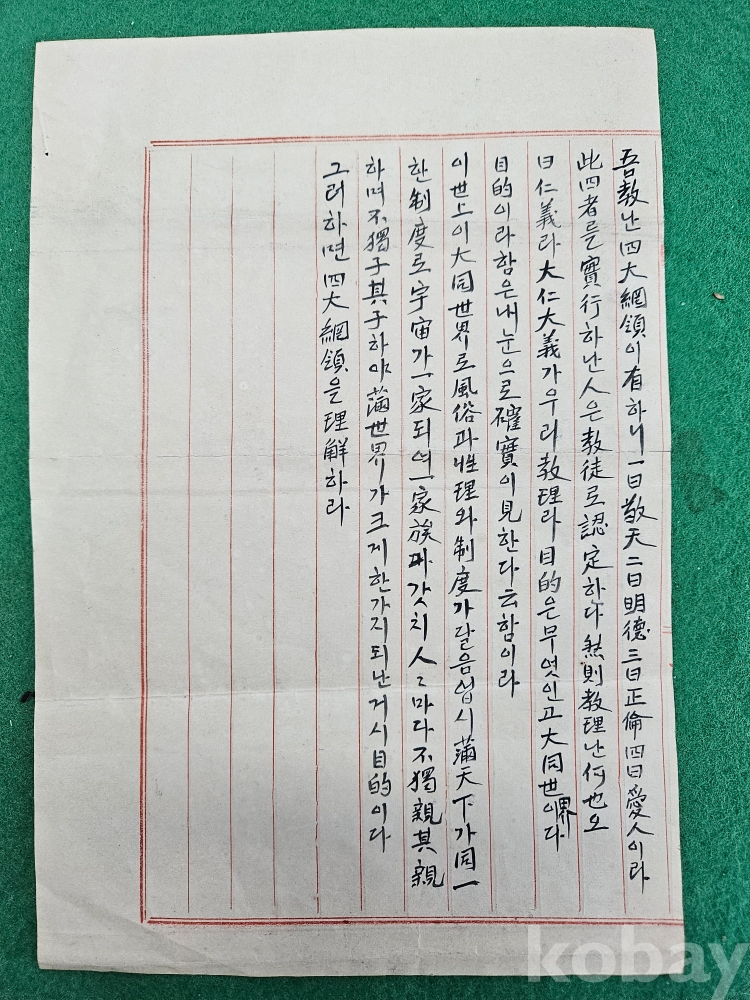 吾敎난四大綱領이有하니一曰敬天二曰明德三曰正倫四曰愛人이라
此四者를實行하난人은敎徒로認定하다然則敎理난何也오
曰仁義라大仁大義가우리敎理라目的은무엇인고大同世界이다
目的이라함은내눈으로確實이見한다云함이라
이世上이大同世界로風俗과性理와制度가달음업시滿天下가同一
한制度로宇宙가一家되여一家族과갓치人〻마다不獨親其親
하며不獨子其子하야滿世界가크게한가지되난거시目的이다
그러하면四大綱領을理解하라
kobay